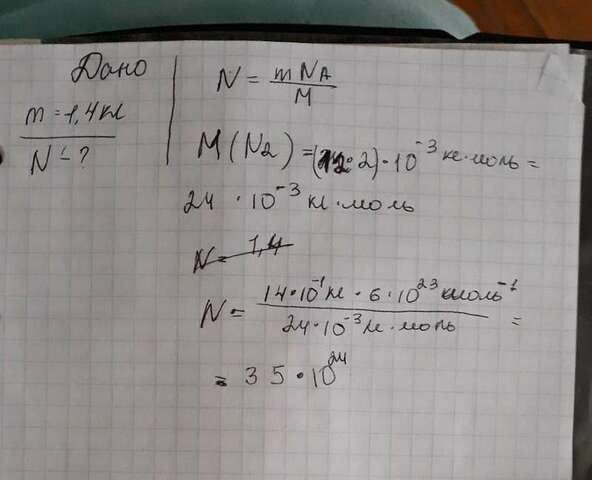 Дано
m = 1,4 кг
N - ?
N = mNA / M
M (N2) = (12·2)·10^-3 кг·моль =
24 · 10^-3 кг·моль
N = 1,4
N = 14·10^-1 кг · 6·10^23 моль^-1 / 24·10^-3 кг·моль =
= 35·10^24